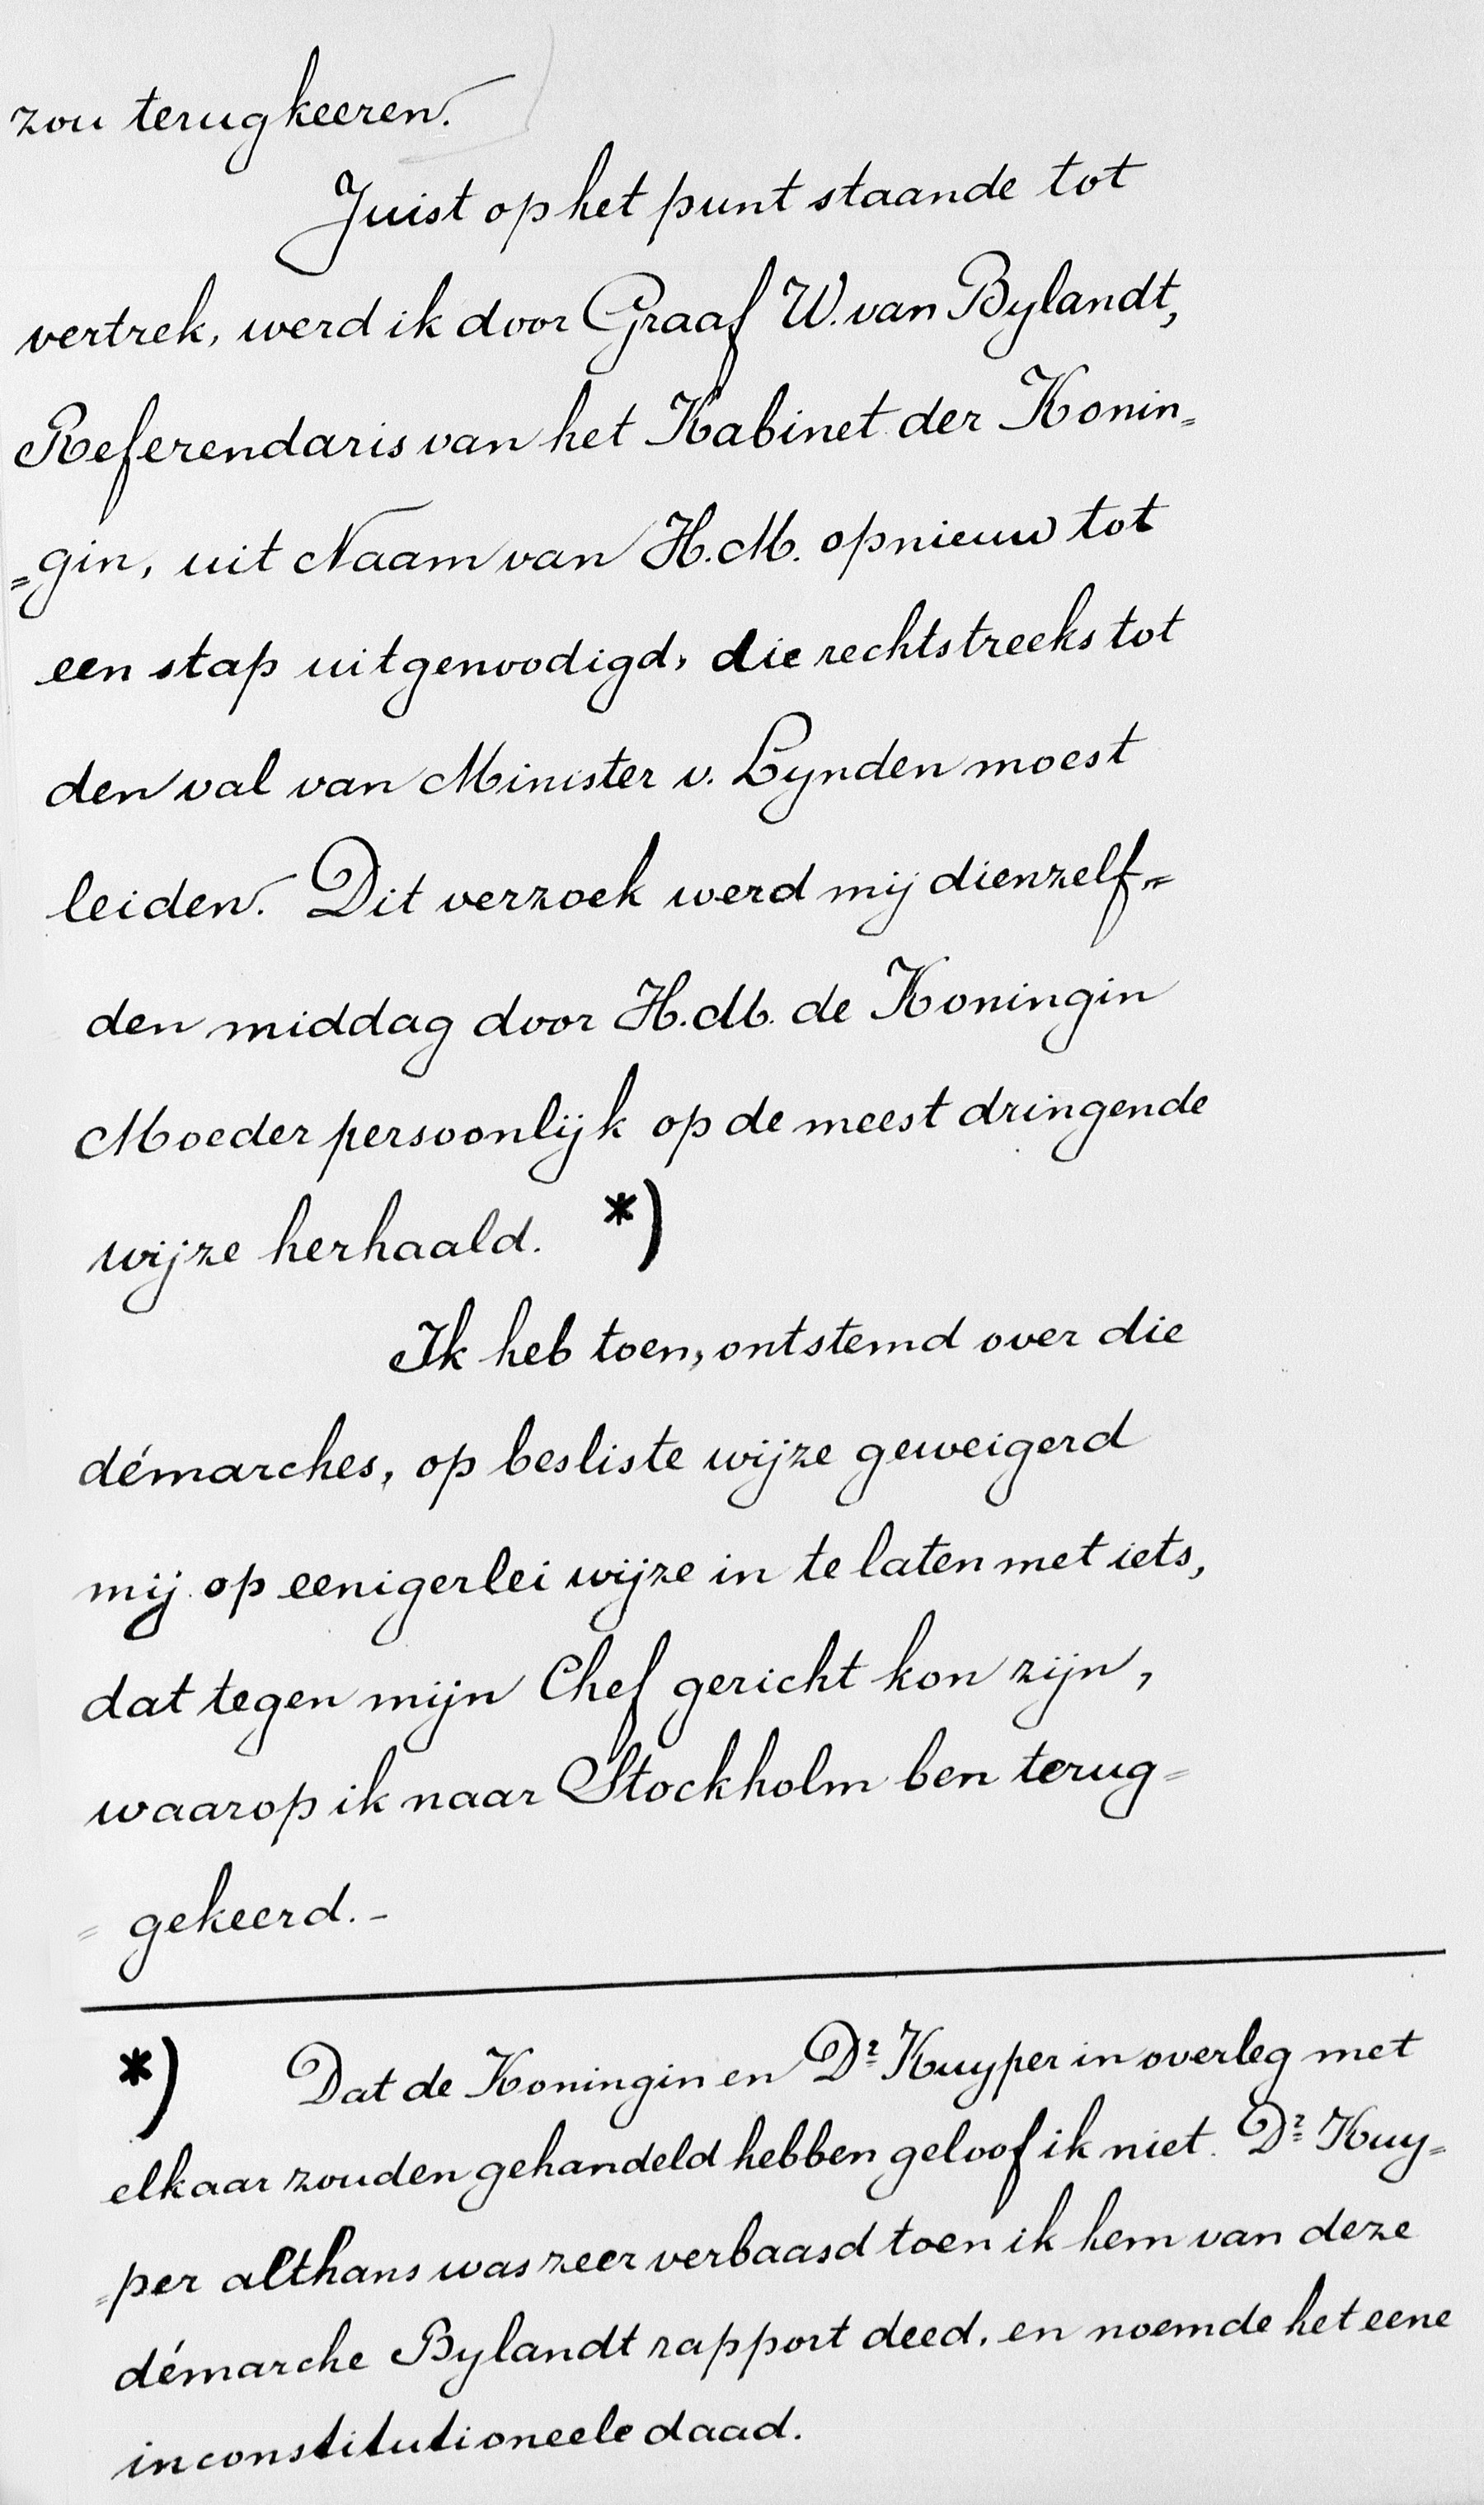 zou terugkeeren.
Juist op het punt staande tot
vertrek, werd ik door Graaf W. van Bylandt,
Referendaris van het Kabinet der Konin=
=gin, uit Naam van H.M. opnieuw tot
een stap uitgenoodigd, die rechtstreeks tot
den val van Minister v. Lynden moest
leiden. Dit verzoek werd mij dienzelf=
den middag door H.M. de Koningin
Moeder persoonlijk op de meest dringende
wijze herhaald. *)
Ik heb toen, ontstemd over die
démarches, op besliste wijze geweigerd
mij op eenigerlei wijze in te laten met iets,
dat tegen mijn Chef gericht kon zijn,
waarop ik naar Stockholm ben terug=
= gekeerd.-
*) Dat de Koningin en Dr Kuyper in overleg met
elkaar zouden gehandeld hebben geloof ik niet. Dr Kuy=
=per althans was zeer verbaasd toen ik hem van deze
démarche Bylandt rapport deed, en noemde het eene
inconstitutioneele daad.